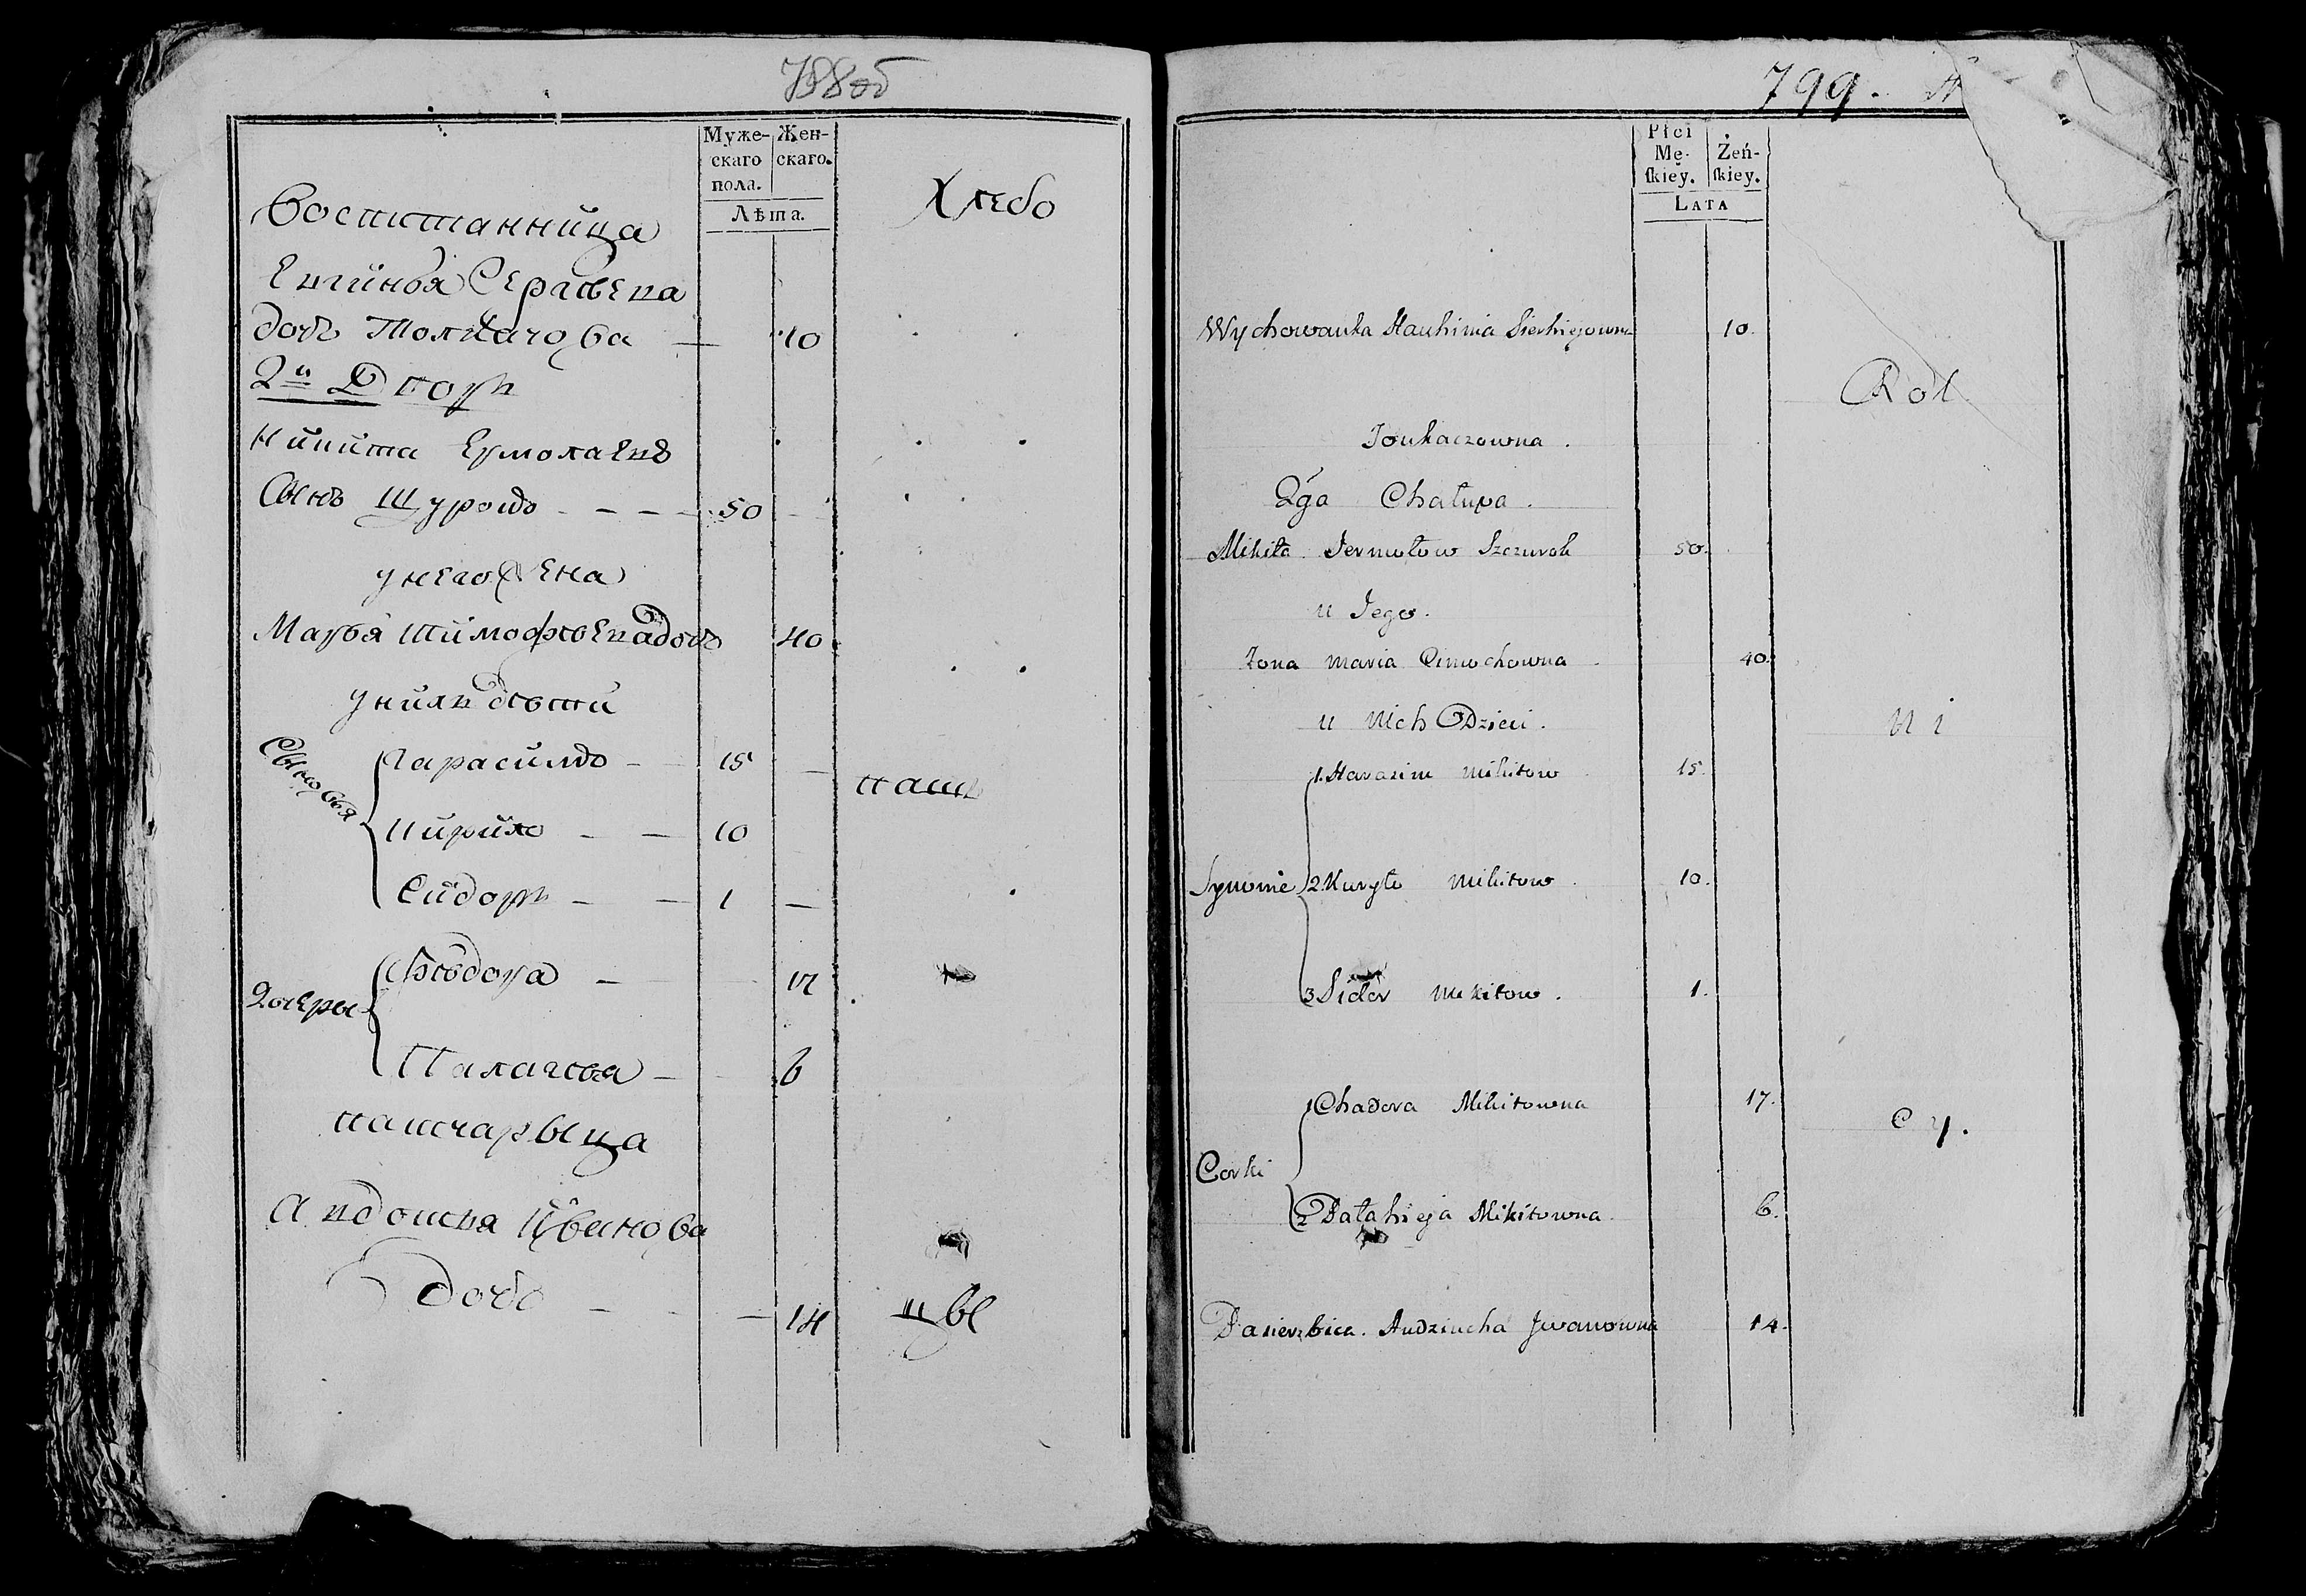 798 об
Муже-
скаго
пола.
Жен-
скаго.
Лѣта.
Воспитанница
Евгинья Сергѣева
дочь Толкачова — 10
2й Дворъ
Никита Ермолаевъ
Сынъ Щурокъ - - - - 50
у него Жена
Марья Тимофѣева дочь 40
у нихъ дѣти
Сыновья
Гарасимъ - 15
Кирило - — 10
Сидоръ - — 1 —
Дочеры
Ѳѣдора — 17
Палагѣя — 6
пашчарыца
Авдошья Иванова
дочь - — 14
Хлебо
паш
цы
799.
Płci
Mę-
ſkiey.
Żeń-
ſkiey.
Lata
Wychowanka Hauhinia Sierhiejowna 10.
Toukaczowna.
2ga Chałupa.
Mikita Jermołow Szczurok 50.
u Jego.
Zona Maria Cimochowna 40.
u Nich Dzieci.
Synowie
1. Harasim Mikitow 15.
2. Kuryło Mikitow. 10.
3 Sidor Mikitow. 1.
Corki
1 Chadora Mikitowna 17.
2 Pałahieja Mikitowna. 6.
Pasierzbica. Audziucha Jwanowna 14.
Rol
ni
cy.